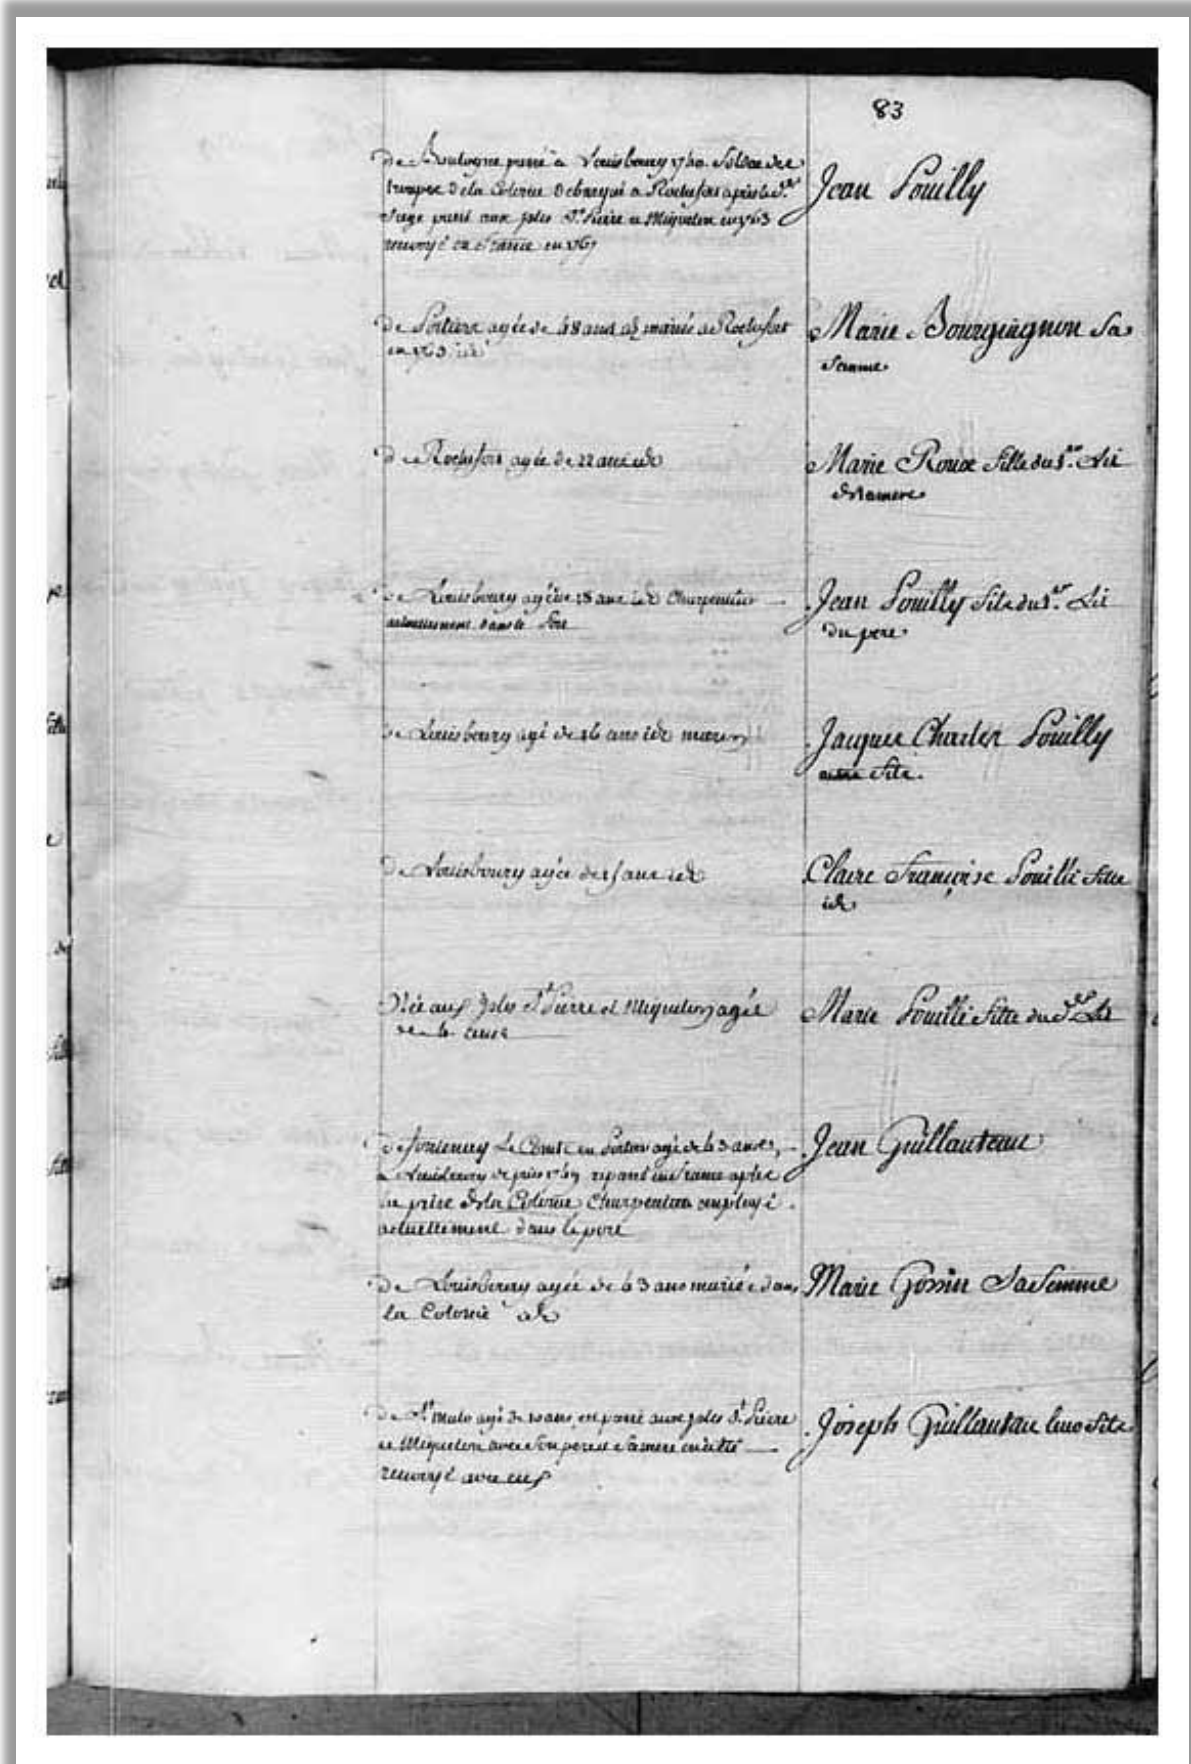 83
de Boulogne passé a Louisbourg 1740. Soldat des
troupes de la Colonie debarqué a Rochefort après le d.
Siege passé aux jsles St. Pierre et Miquelon en 1763
renvoyé en France en 1767
Jean Pouilly
de Poitiers agée de 48 ans mariée a Rochefort
en 1763. id
Marie Bourguignon Sa
femme
de Rochefort agée de 22 ans id
Marie Roux fille du 1er. Lit
de la mere
de Louisbourg agé de 18 ans id Charpentier
actuellement dans le Port
Jean Pouilly fils du 1er. Lit
du pere
de Louisbourg agé de 16 ans id marin
Jacques Charles Pouilly
autre fils.
de Louisbourg agée de ans id
Claire Françoise Pouilli fille
id
Née aux Jsles St Pierre et Miquelon agée
de ans
Marie Pouilli fille du Lit
de fontenay Le Comte en Poitou agé de 43 ans,
a Louisbourg depuis 1749 repassé en france après
la prise de la Colonie Charpentier employé
actuellement dans le port
Jean Guillauteau
de Louisbourg agée de 43 ans mariée dans
la Colonie id
Marie Gossin Sa femme
de St. Malo agé de 10 ans, est passé aux jsles St. Pierre
et Miquelon avec Son pere et Sa mere en été
renvoyé avec eux
Joseph Guillauteau leur fils